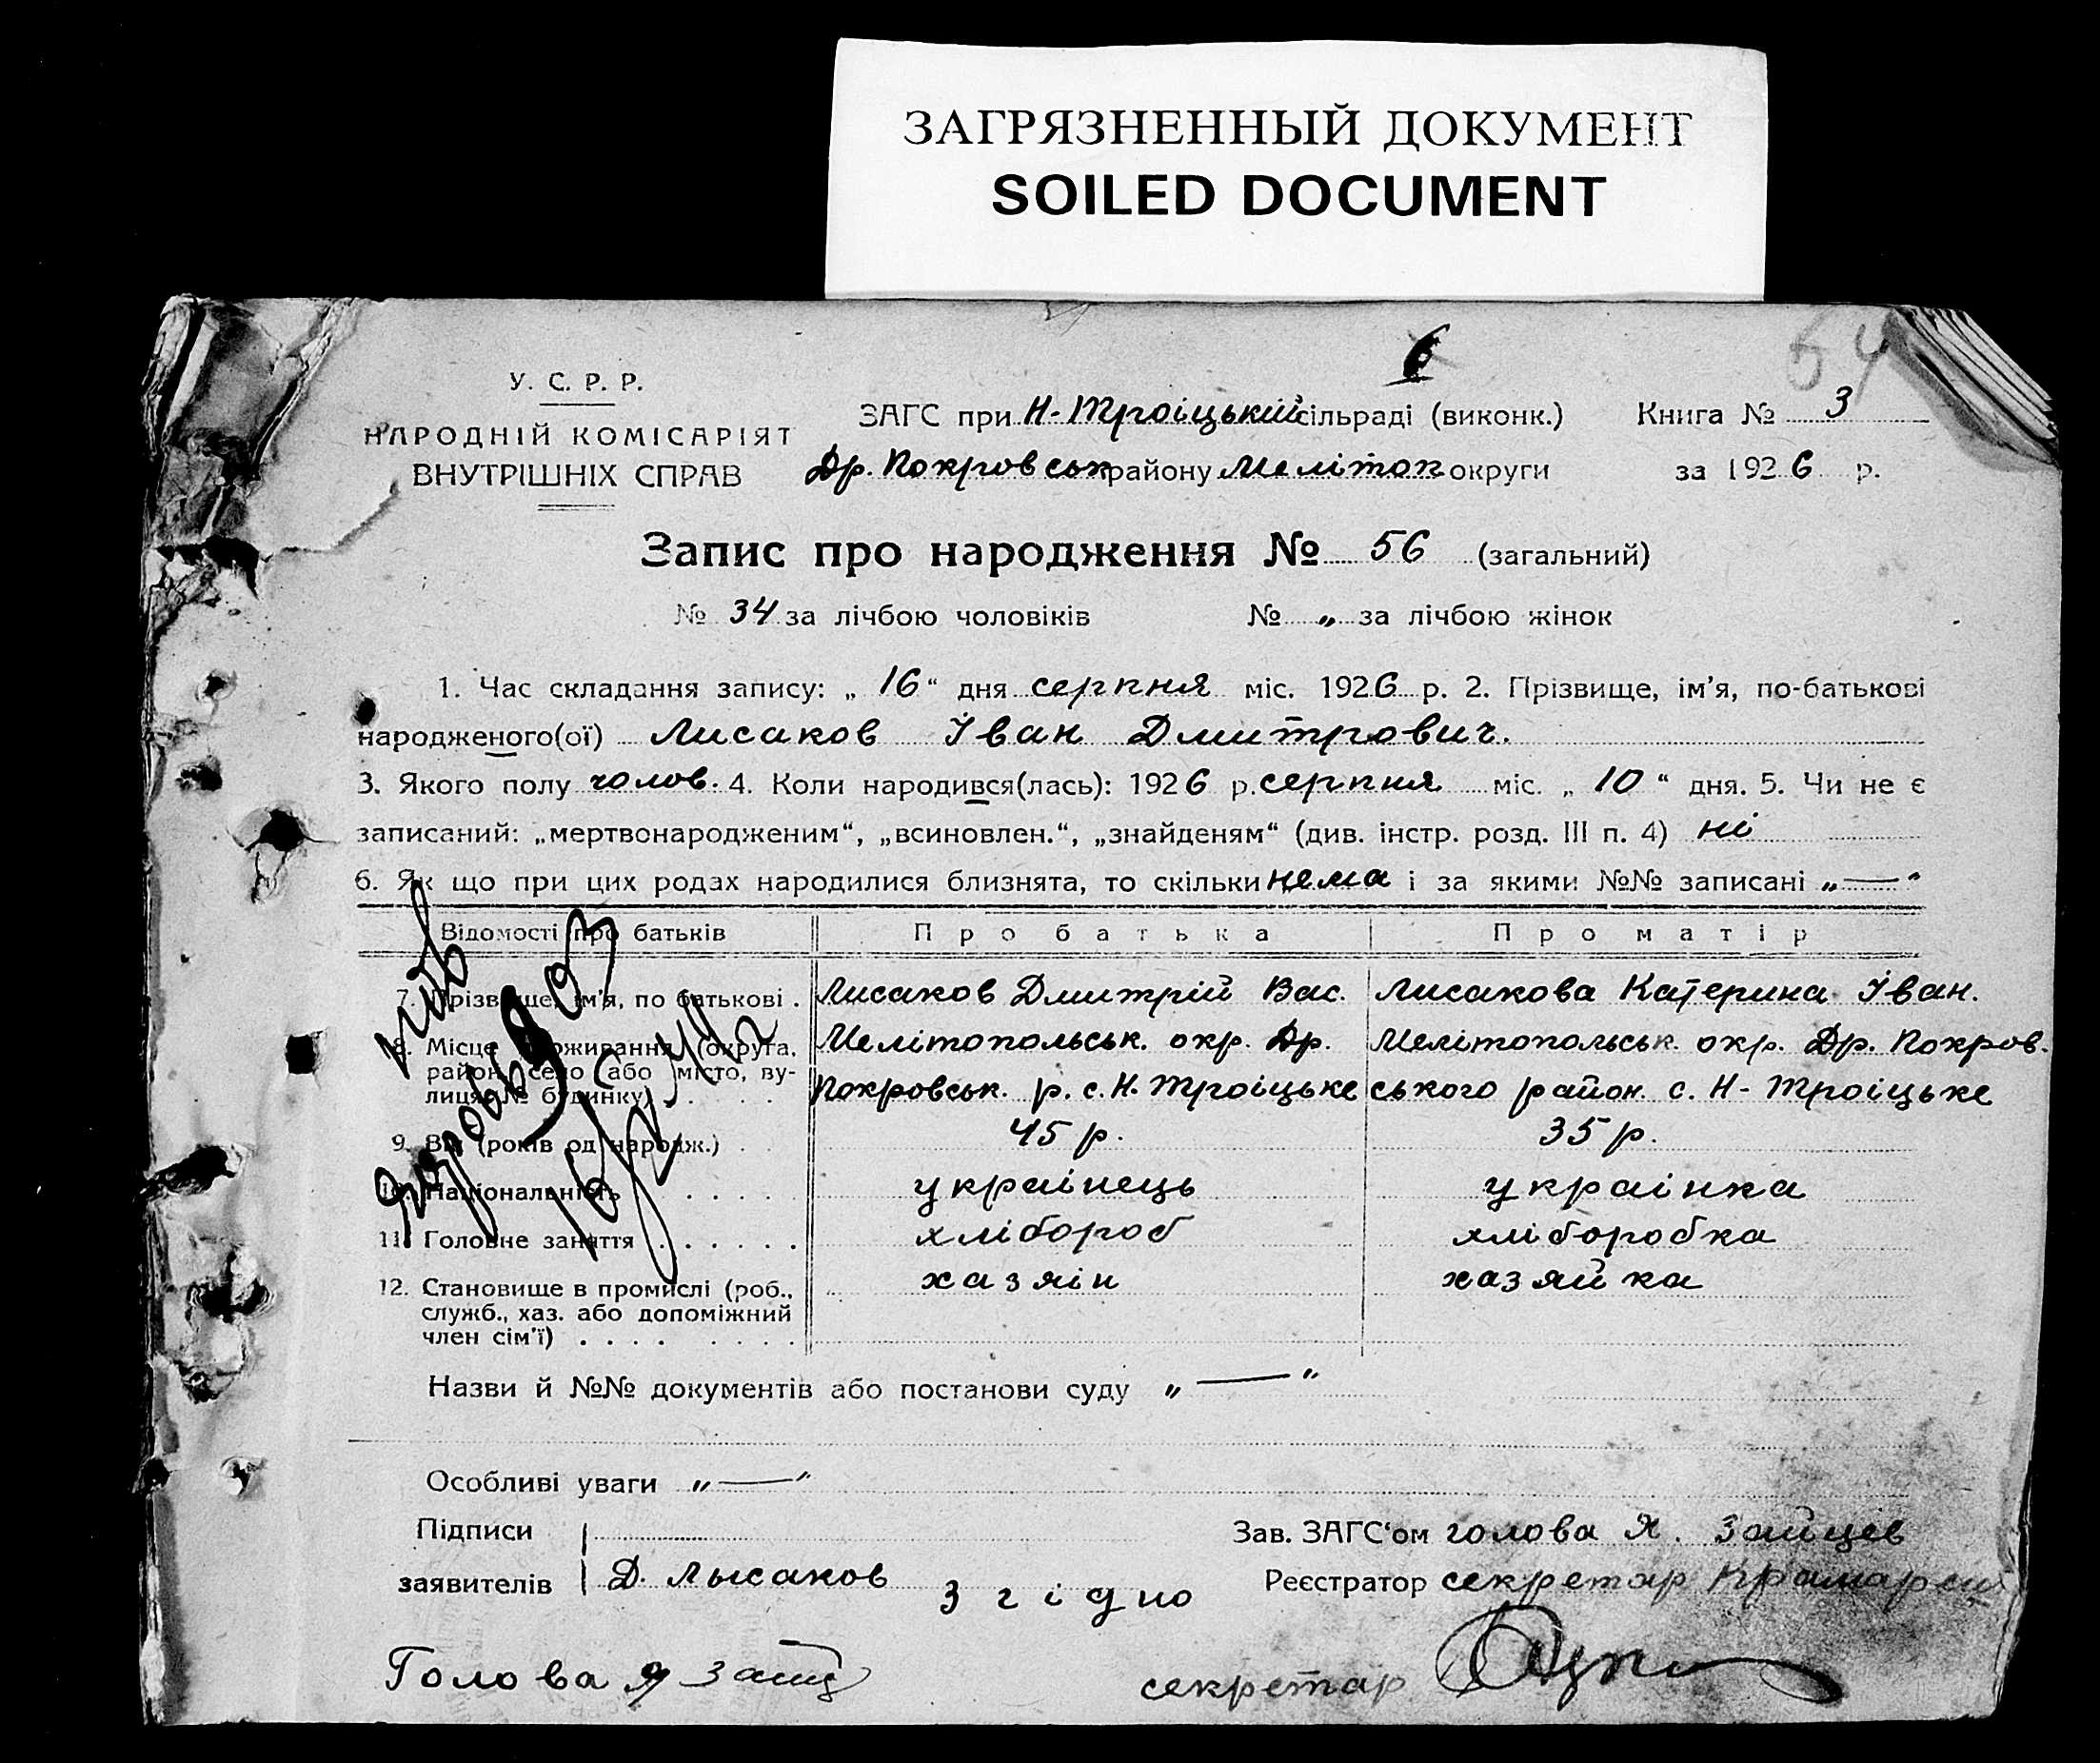 ЗАГРЯЗНЕННЫЙ ДОКУМЕНТ
SOILED DOCUMENT
6
54
У. С. Р. Р.
НАРОДНІЙ КОМІСАРІЯТ
ВНУТРІШНІХ СПРАВ
ЗАГС при Н-Троіцькій сільраді (виконк.) Книга № 3
Др. Покровськ району Мелітоп округи за 1926 р.
Запис про народження № 56 (загальний)
№ 34 за лічбою чоловіків № „ за лічбою жінок
1. Час складання запису: „ 16 “ дня серпня міс. 1926 р. 2. Прізвище, ім'я, по-батькові
народженого(ої) Лисаков Іван Дмитрович.
3. Якого полу чолов. 4. Коли народився(лась): 1926 р. серпня міс. „ 10 “ дня. 5. Чи не є
записаний: „мертвонародженим“, „всиновлен.“, „знайденям“ (див. інстр. розд. III п. 4) ні
6. Як що при цих родах народилися близнята, то скільки нема і за якими №№ записані „—“
Відомості про батьків Про батька Про матір
7. Прізвище, ім'я, по батькові . Лисаков Дмитрій Вас. Лисакова Катерина Іван.
8. Місце проживання (округа, район, село або місто, вулиця, № будинку) . . . . Мелітопольськ. окр. Др. Мелітопольськ. окр. Др. Покров.
Покровськ. р. с. Н. Троіцьке ського район. с. Н-Троіцьке
9. Вік (років од народж.) . . 45 р. 35 р.
10. Національність . . . . . українець українка
11. Головне заняття . . . . . . хлібороб хліборобка
12. Становище в промислі (роб., хазяін хазяйка
служб., хаз. або допоміжний
член сім'ї) . . . . . . . .
Назви й №№ документів або постанови суду „—“
Особливі уваги „—“
Підписи Зав. ЗАГС'ом голова Я. Зайцев
заявителів Д. Лысаков Реєстратор секретар
Згідно
Голова Я Зайц секретар